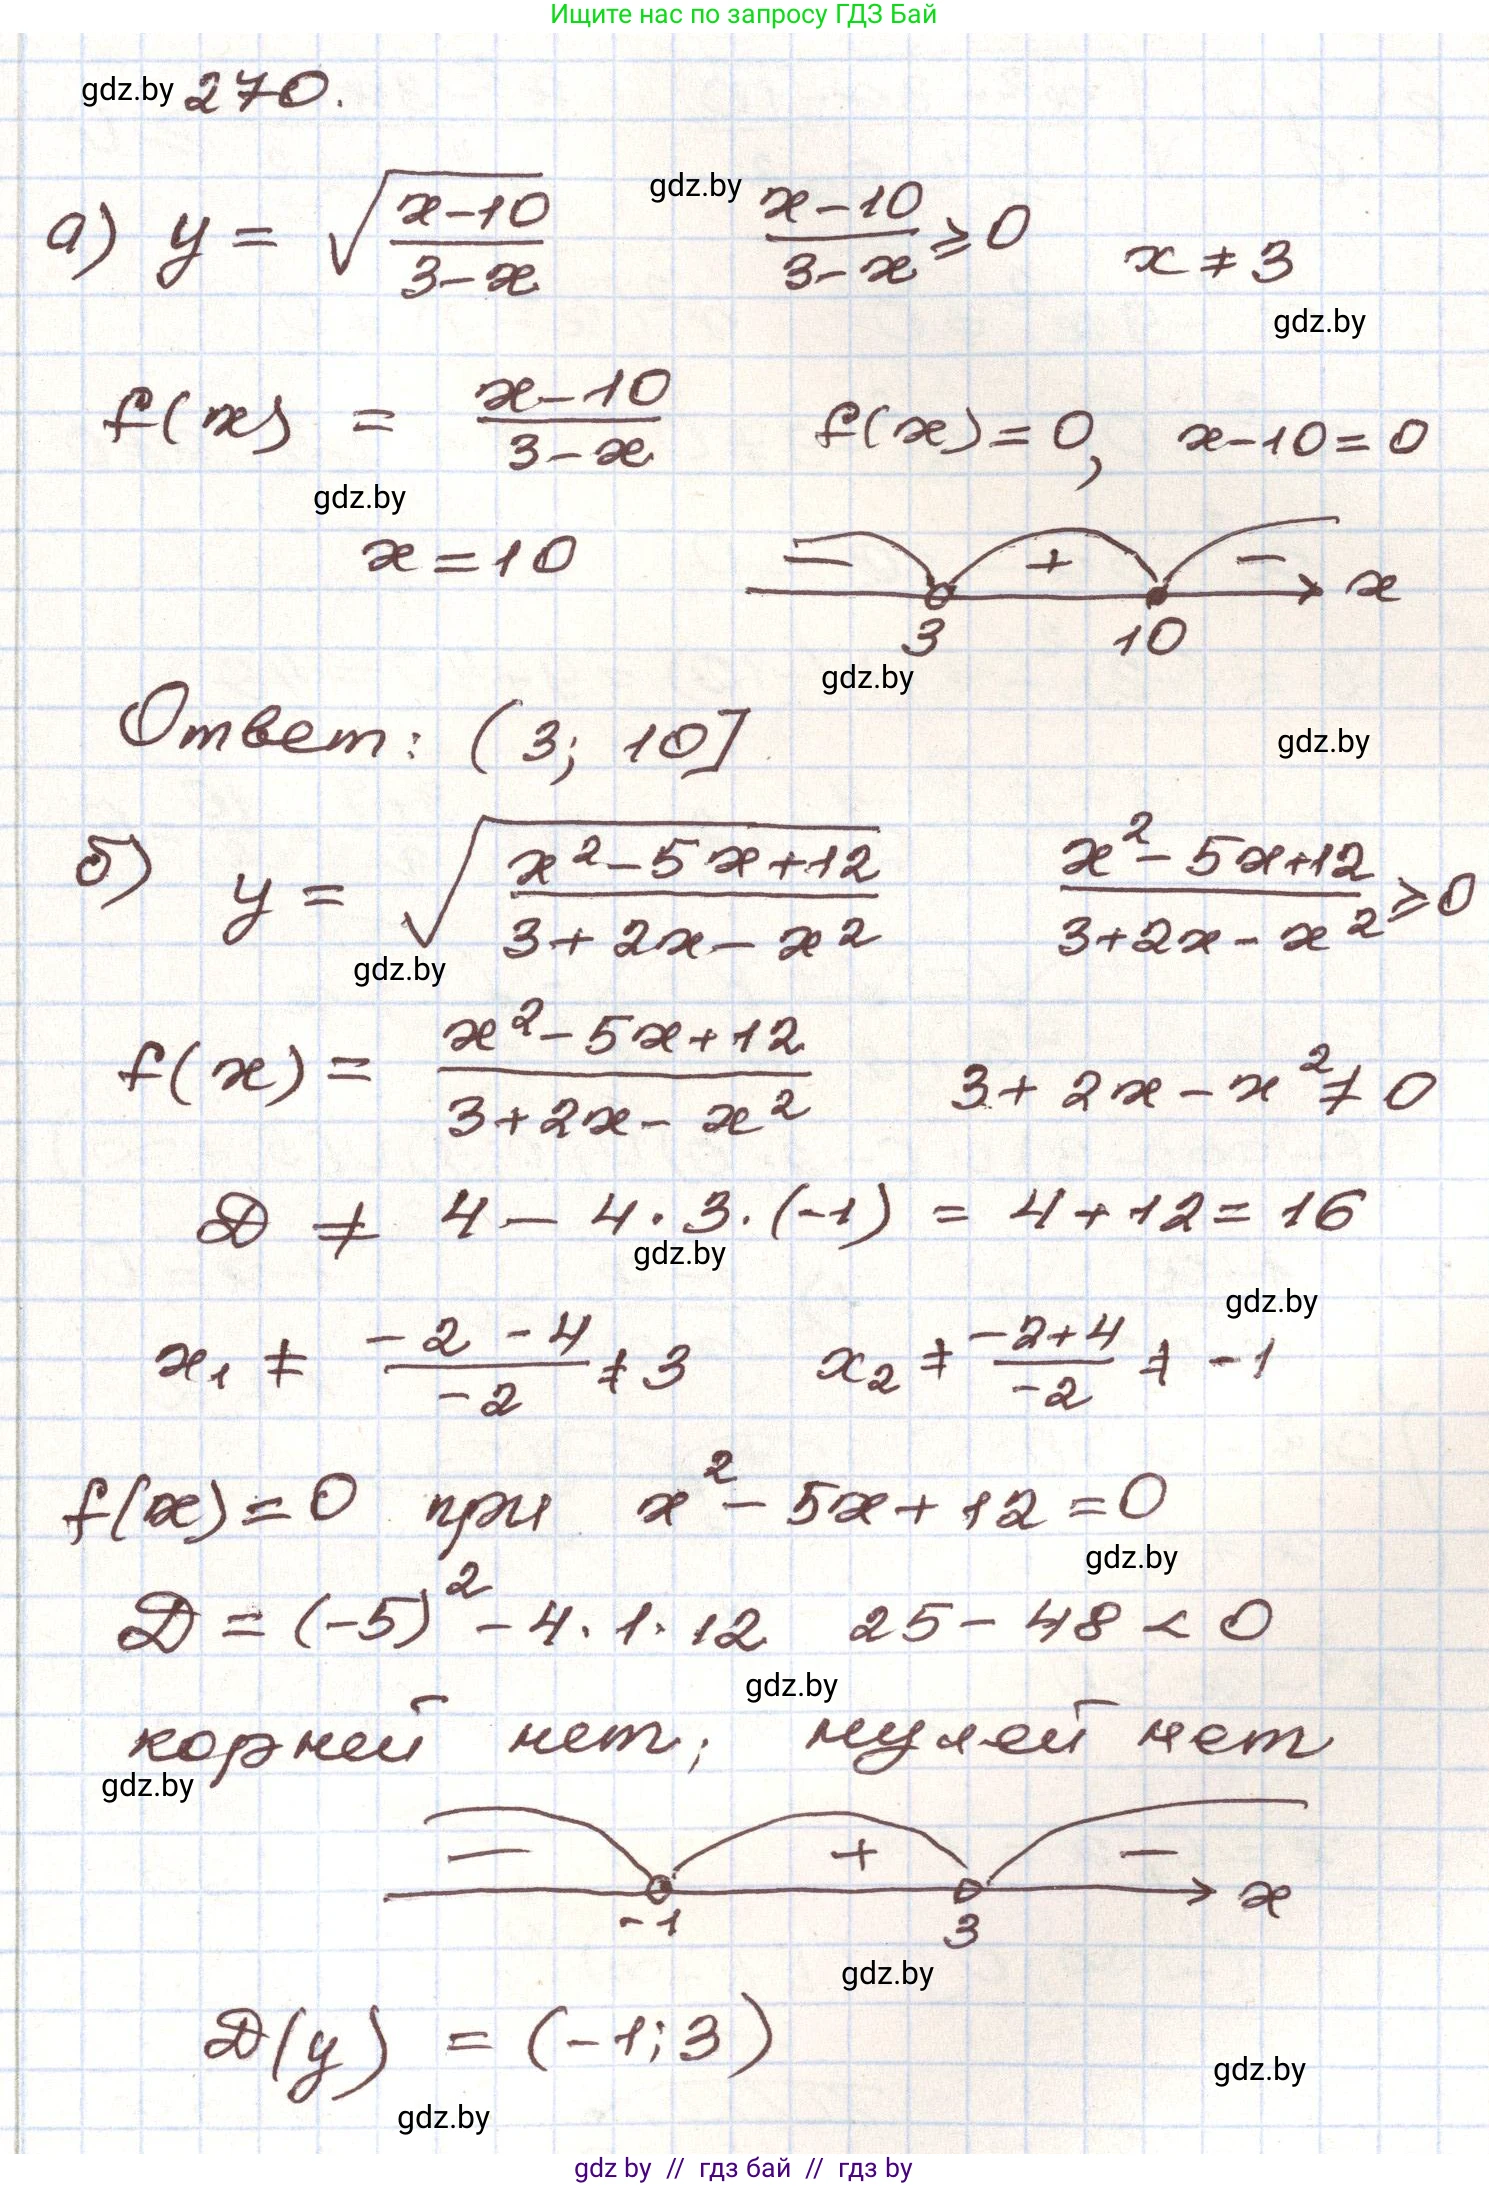 Ищите нас по запросу ГДЗ Бай
gdz.by 270.
а) y = √((x-10)/(3-x)) gdz.by (x-10)/(3-x) ⩾ 0 x ≠ 3
gdz.by
f(x) = (x-10)/(3-x) f(x) = 0, x-10=0
gdz.by
x = 10 - + - x
3 10
gdz.by
Ответ: (3; 10] gdz.by
б) y = √((x²-5x+12)/(3+2x-x²)) (x²-5x+12)/(3+2x-x²) ⩾ 0
gdz.by
f(x) = (x²-5x+12)/(3+2x-x²) 3+2x-x² ≠ 0
D ≠ 4 - 4·3·(-1) = 4+12 = 16
gdz.by
gdz.by
x₁ ≠ (-2-4)/(-2) ≠ 3 x₂ ≠ (-2+4)/(-2) ≠ -1
f(x) = 0 при x²-5x+12=0
gdz.by
D = (-5)² - 4·1·12 25-48 < 0
gdz.by
корней нет; нулей нет
gdz.by
- + - x
-1 3
gdz.by
D(y) = (-1; 3)
gdz.by
gdz.by
gdz by // гдз бай // гдз by